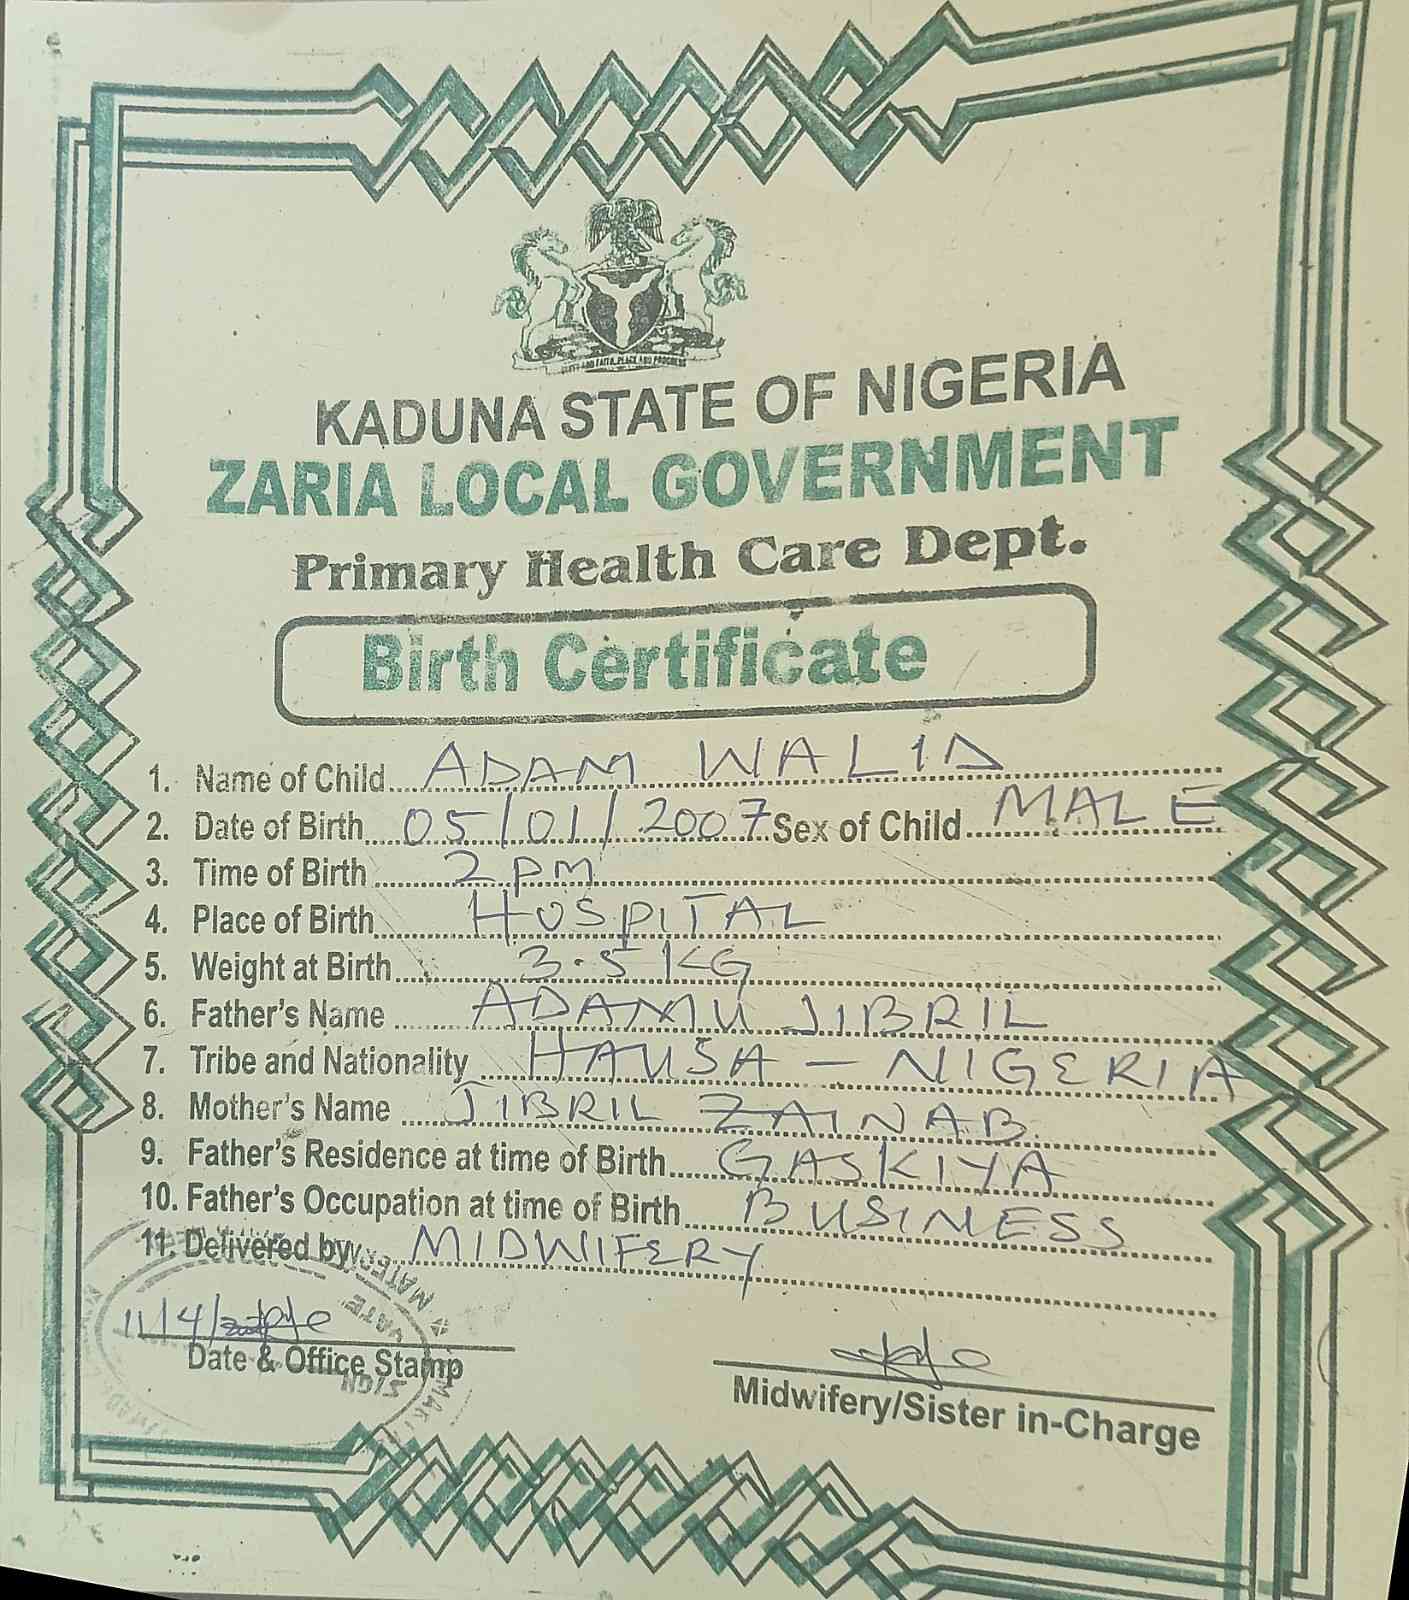 KADUNA STATE OF NIGERIA
ZARIA LOCAL GOVERNMENT
Primary Health Care Dept.
Birth Certificate
1. Name of Child ADAM WALID
2. Date of Birth 05/01/2007 Sex of Child MALE
3. Time of Birth 2pm
4. Place of Birth HOSPITAL
5. Weight at Birth 3.5KG
6. Father's Name ADAMU JIBRIL
7. Tribe and Nationality HAUSA - NIGERIA
8. Mother's Name JIBRIL ZAINAB
9. Father's Residence at time of Birth GASKIYA
10. Father's Occupation at time of Birth BUSINESS
11. Delivered by MIDWIFERY
11/4/
Date & Office Stamp
SIGN
Midwifery/Sister in-Charge